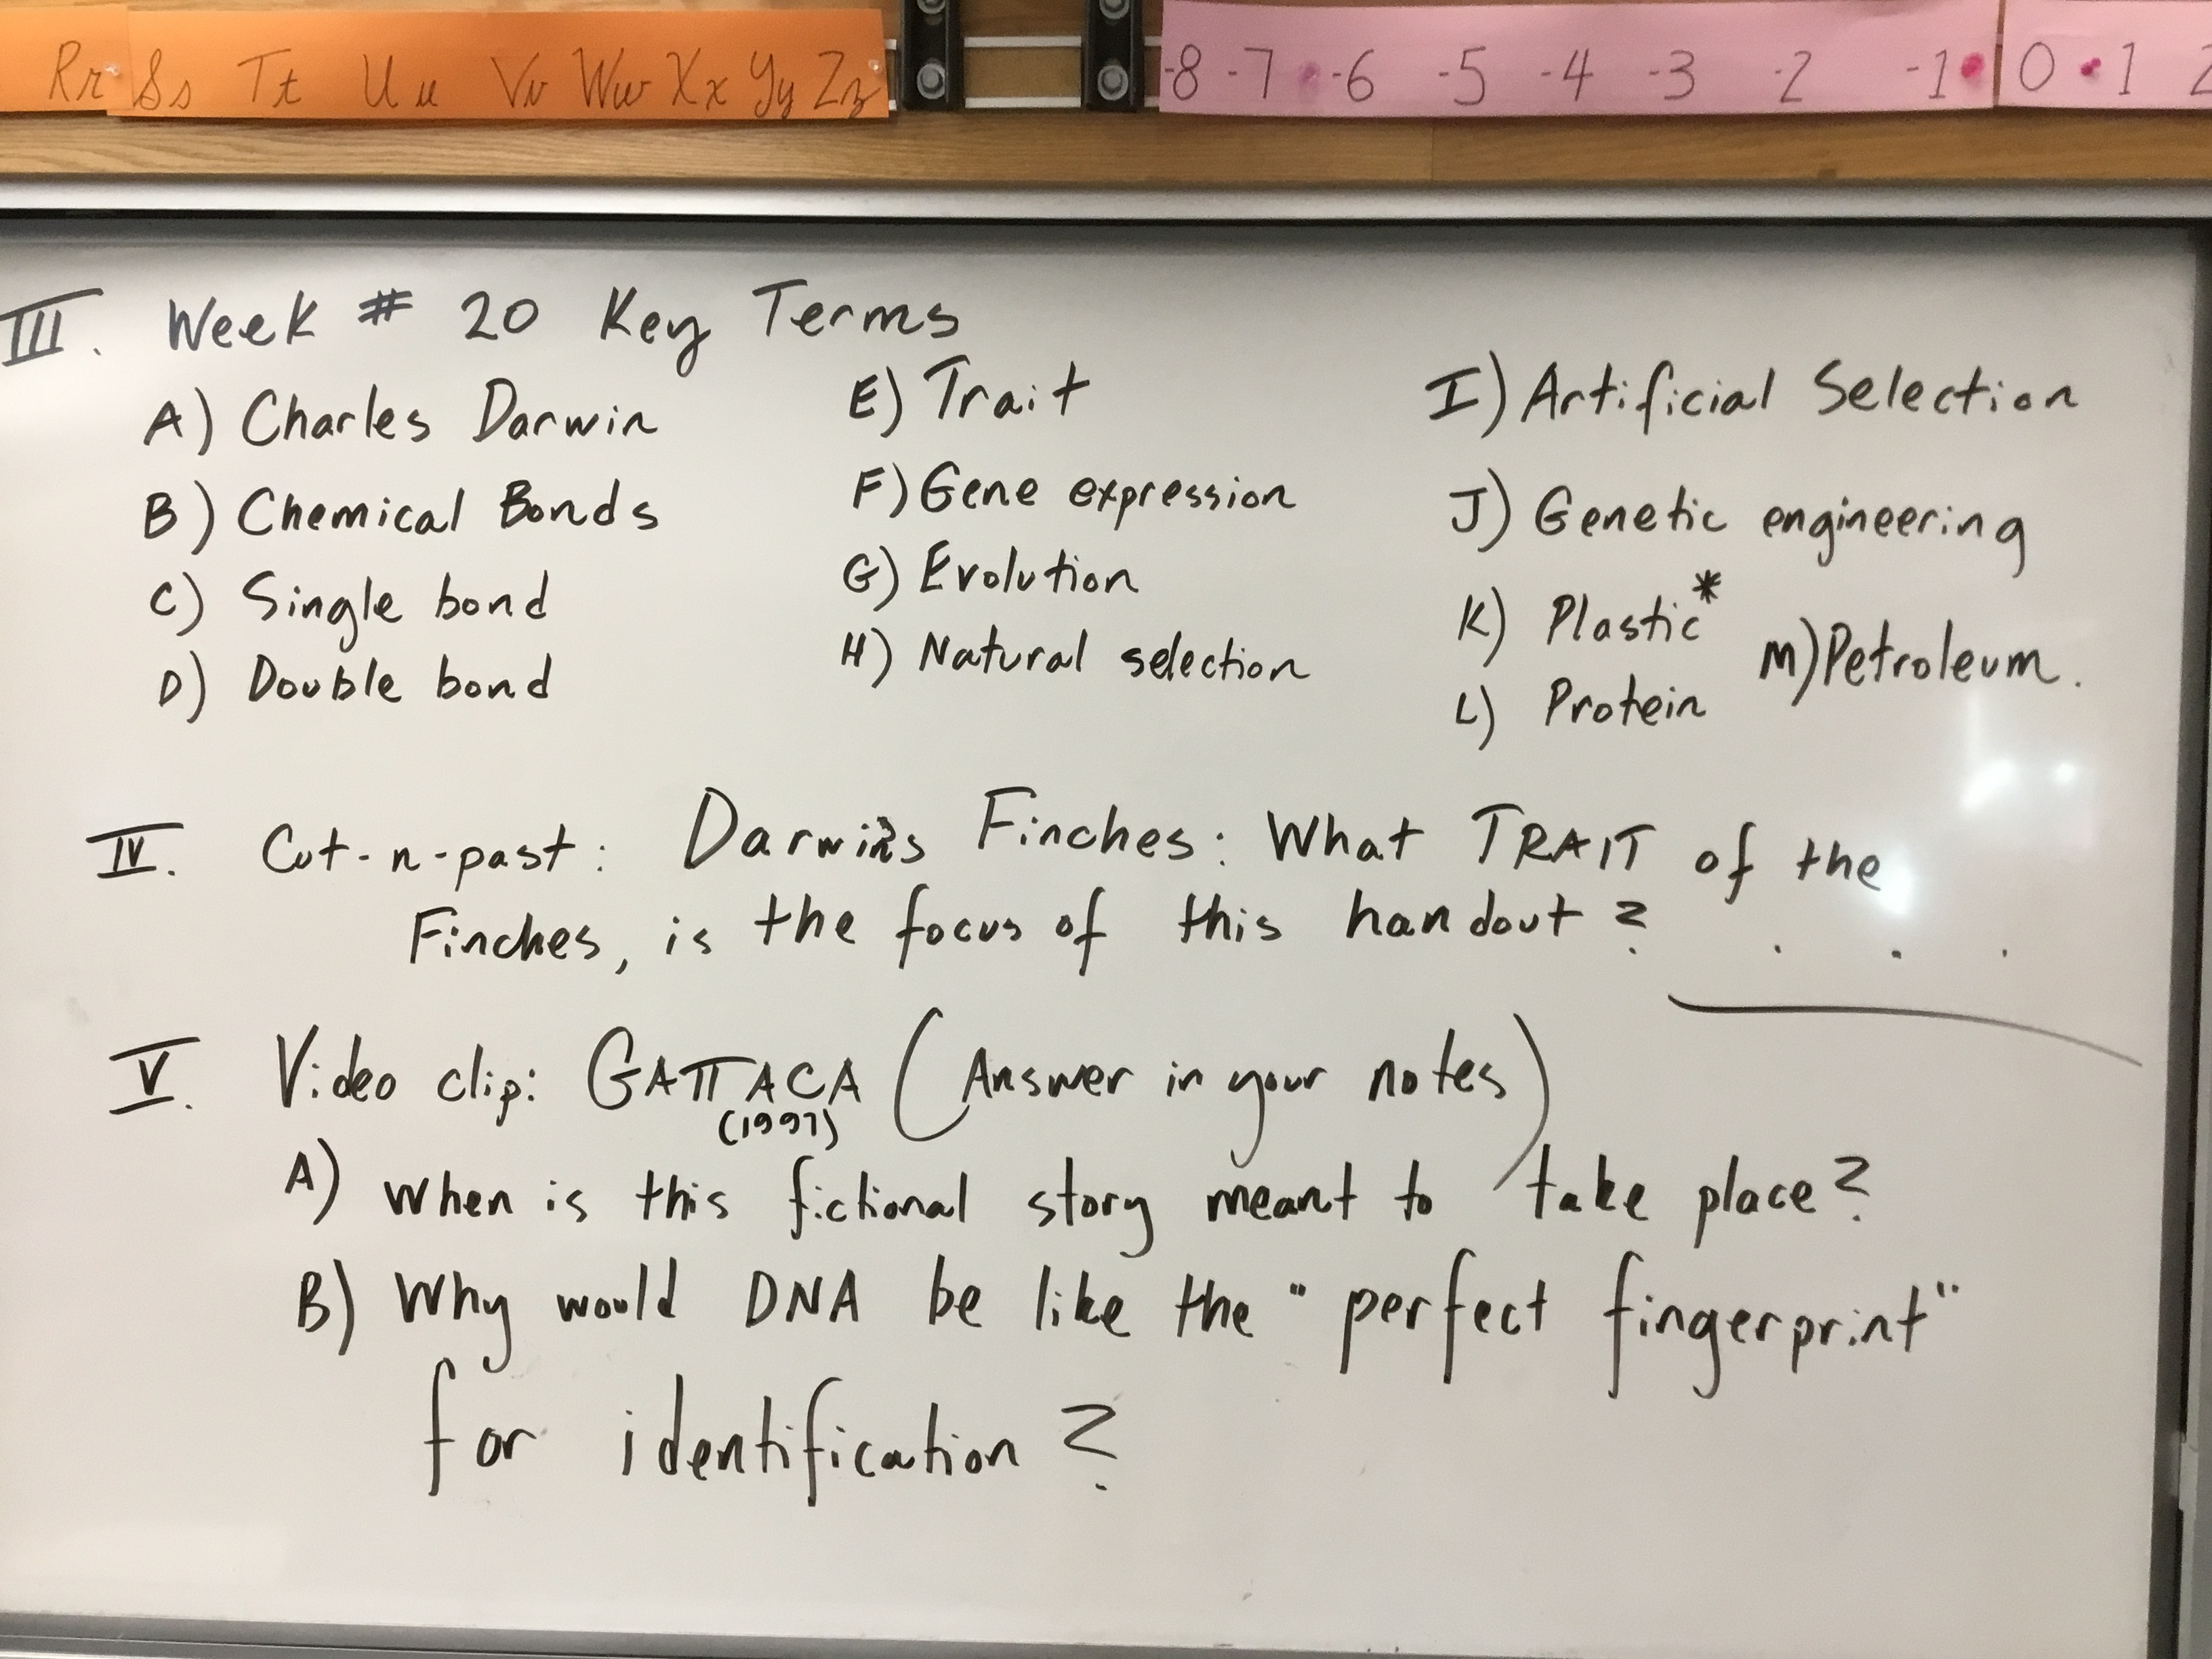 Rr Ss Tt Uu Vv Ww Xx Yy Zz
-8 -7 -6 -5 -4 -3 -2 -1 0 1 2
III. Week # 20 Key Terms
A) Charles Darwin
B) Chemical Bonds
C) Single bond
D) Double bond
E) Trait
F) Gene expression
G) Evolution
H) Natural selection
I) Artificial Selection
J) Genetic engineering
K) Plastic*
L) Protein
M) Petroleum.
IV. Cut-n-past: Darwin's Finches: What TRAIT of the
Finches, is the focus of this handout?
V. Video clip: GATTACA (Answer in your notes)
(1997)
A) When is this fictional story meant to take place?
B) Why would DNA be like the "perfect fingerprint"
for identification?